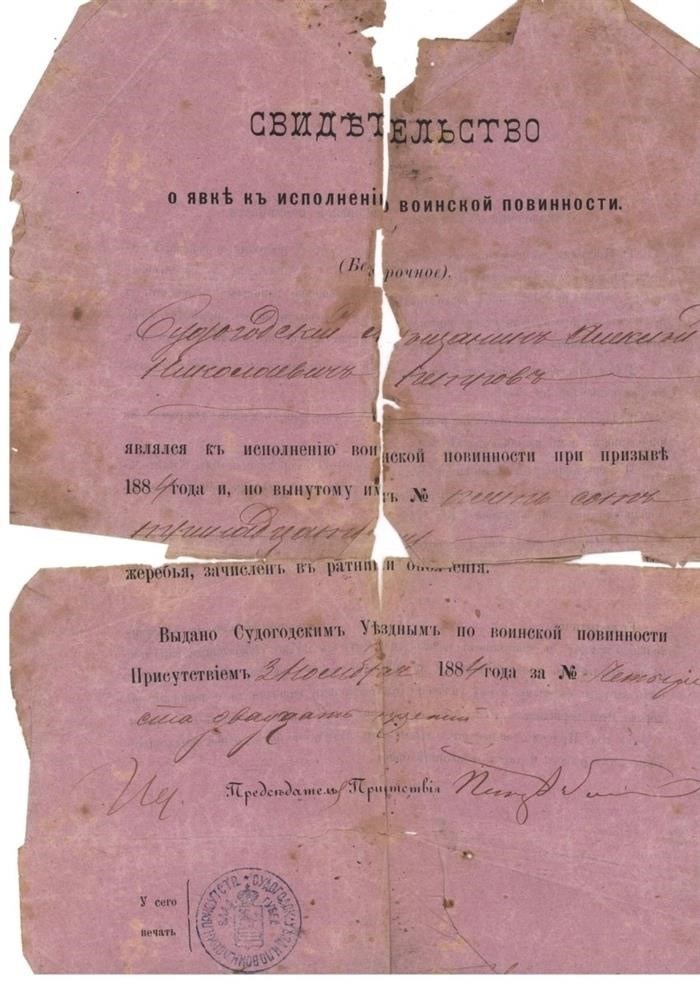 СВИДѢТЕЛЬСТВО
О ЯВКѢ КЪ ИСПОЛНЕНІЮ ВОИНСКОЙ ПОВИННОСТИ.
(Безсрочное).
Судогодскій мѣщанинъ Алексѣй
Николаевичъ Петровъ
являлся къ исполненію воинской повинности при призывѣ
1884 года и, по вынутому имъ №
жеребья, зачисленъ въ ратники ополченія.
Выдано Судогодскимъ Уѣзднымъ по воинской повинности
Присутствіемъ 3 Ноября 1884 года за № Четыре
ста двадцать третій
Предсѣдатель Присутствія
У сего
печать